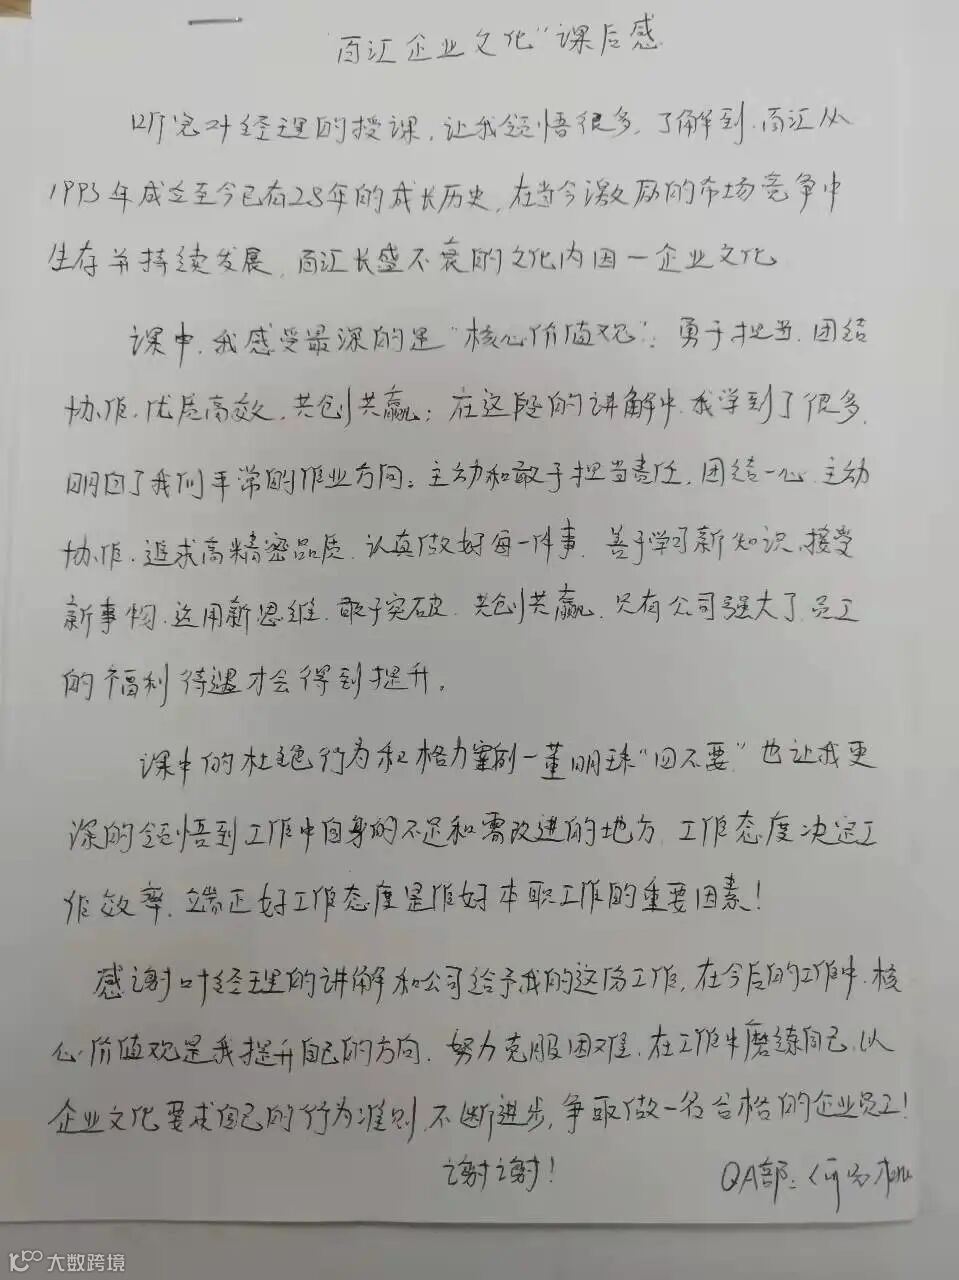 “百汇企业文化”课后感
听完叶经理的授课,让我领悟很多,了解到,百汇从
1993年成立至今已有28年的成长历史,在当今激励的市场竞争中
生存并持续发展,百汇长盛不衰的文化内因—企业文化
课中,我感受最深的是“核心价值观”:勇于担当,团结
协作,优质高效,共创共赢;在这段的讲解中,我学到了很多,
明白了我们平常的作业方向:主动和敢于担当责任,团结一心,主动
协作,追求高精密品质,认真做好每一件事,善于学习新知识,接受
新事物,运用新思维,敢于突破,共创共赢,只有公司强大了,员工
的福利待遇才会得到提升。
课中的杜绝行为和格力案例—董明珠“四不要”也让我更
深的领悟到工作中自身的不足和需改进的地方,工作态度决定工
作效率,端正好工作态度是作好本职工作的重要因素!
感谢叶经理的讲解和公司给予我的这份工作,在今后的工作中,核
心价值观是我提升自己的方向,努力克服困难,在工作中磨练自己,以
企业文化要求自己的行为准则,不断进步,争取做一名合格的企业员工!
谢谢!
QA部:
大数跨境